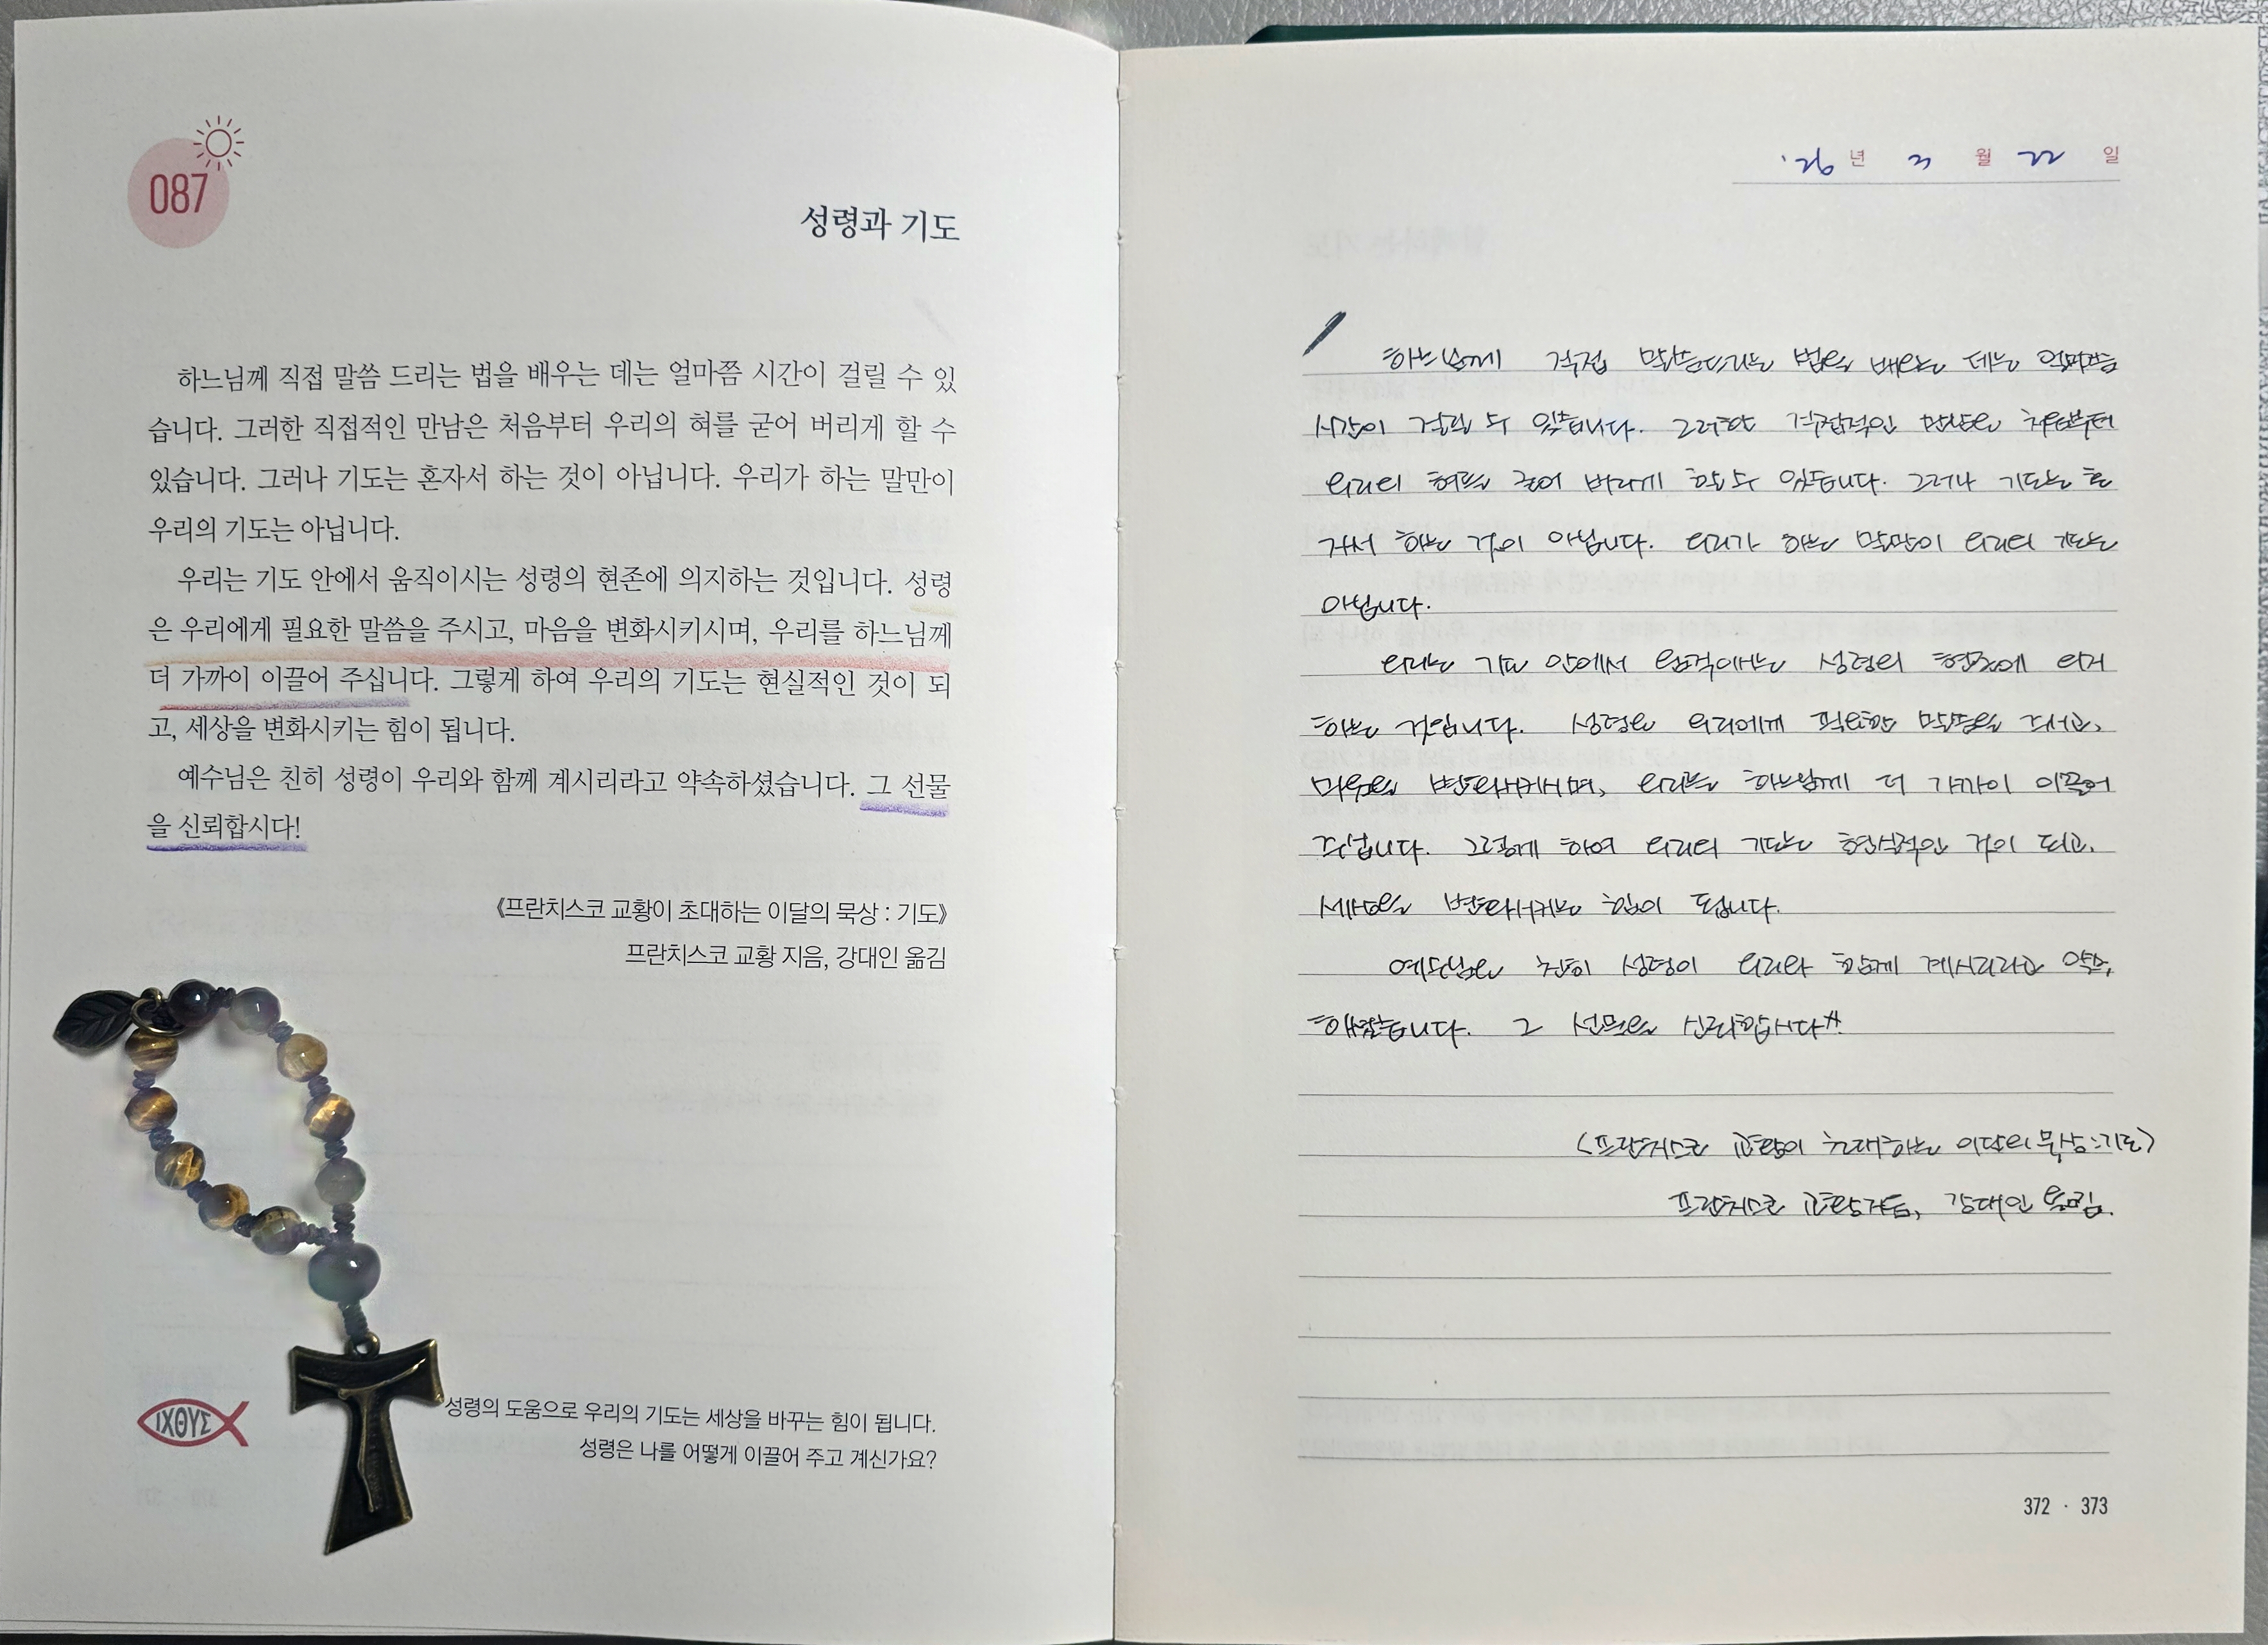 087
성령과 기도
하느님께 직접 말씀 드리는 법을 배우는 데는 얼마쯤 시간이 걸릴 수 있
습니다. 그러한 직접적인 만남은 처음부터 우리의 혀를 굳어 버리게 할 수
있습니다. 그러나 기도는 혼자서 하는 것이 아닙니다. 우리가 하는 말만이
우리의 기도는 아닙니다.
우리는 기도 안에서 움직이시는 성령의 현존에 의지하는 것입니다. 성령
은 우리에게 필요한 말씀을 주시고, 마음을 변화시키시며, 우리를 하느님께
더 가까이 이끌어 주십니다. 그렇게 하여 우리의 기도는 현실적인 것이 되
고, 세상을 변화시키는 힘이 됩니다.
예수님은 친히 성령이 우리와 함께 계시리라고 약속하셨습니다. 그 선물
을 신뢰합시다!
《프란치스코 교황이 초대하는 이달의 묵상 : 기도》
프란치스코 교황 지음, 강대인 옮김
ΙΧΘΥΣ
성령의 도움으로 우리의 기도는 세상을 바꾸는 힘이 됩니다.
성령은 나를 어떻게 이끌어 주고 계신가요?
'26년 3월 22일
하느님께 직접 말씀드리는 법을 배우는 데는 얼마쯤
시간이 걸릴 수 있습니다. 그러한 직접적인 만남은 처음부터
우리의 혀를 굳어 버리게 할 수 있습니다. 그러나 기도는 혼
자서 하는 것이 아닙니다. 우리가 하는 말만이 우리의 기도는
아닙니다.
우리는 기도 안에서 움직이시는 성령의 현존에 의지
하는 것입니다. 성령은 우리에게 필요한 말씀을 주시고,
마음을 변화시키시며, 우리를 하느님께 더 가까이 이끌어
주십니다. 그렇게 하여 우리의 기도는 현실적인 것이 되고,
세상을 변화시키는 힘이 됩니다.
예수님은 친히 성령이 우리와 함께 계시리라고 약속
하셨습니다. 그 선물을 신뢰합시다!!
〈프란치스코 교황이 초대하는 이달의 묵상:기도〉
프란치스코 교황지음, 강대인 옮김.
372 · 373